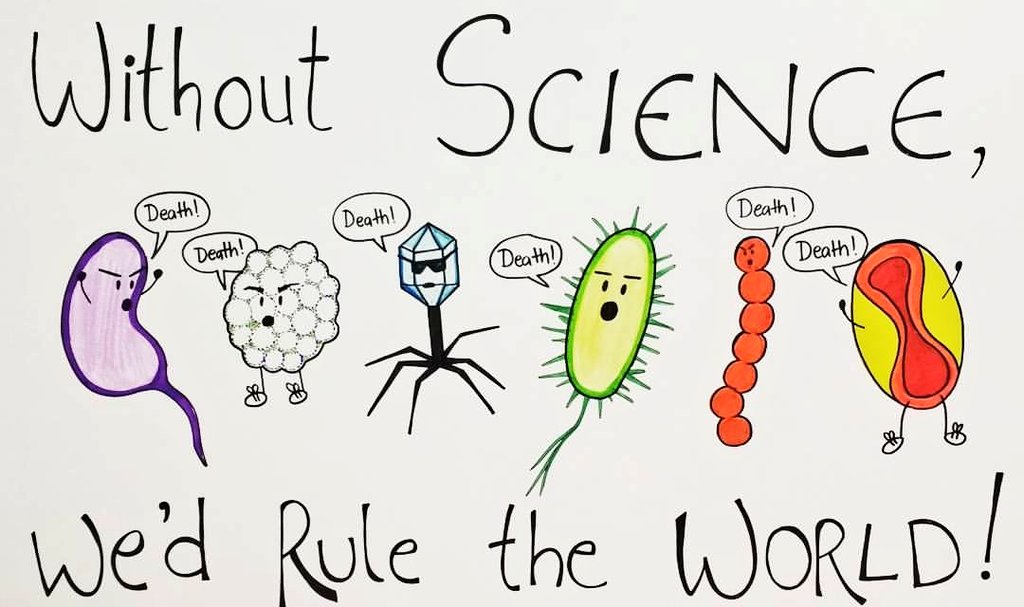 Without SCIENCE,
Death!
Death!
Death!
Death!
Death!
Death!
We'd Rule the WORLD!